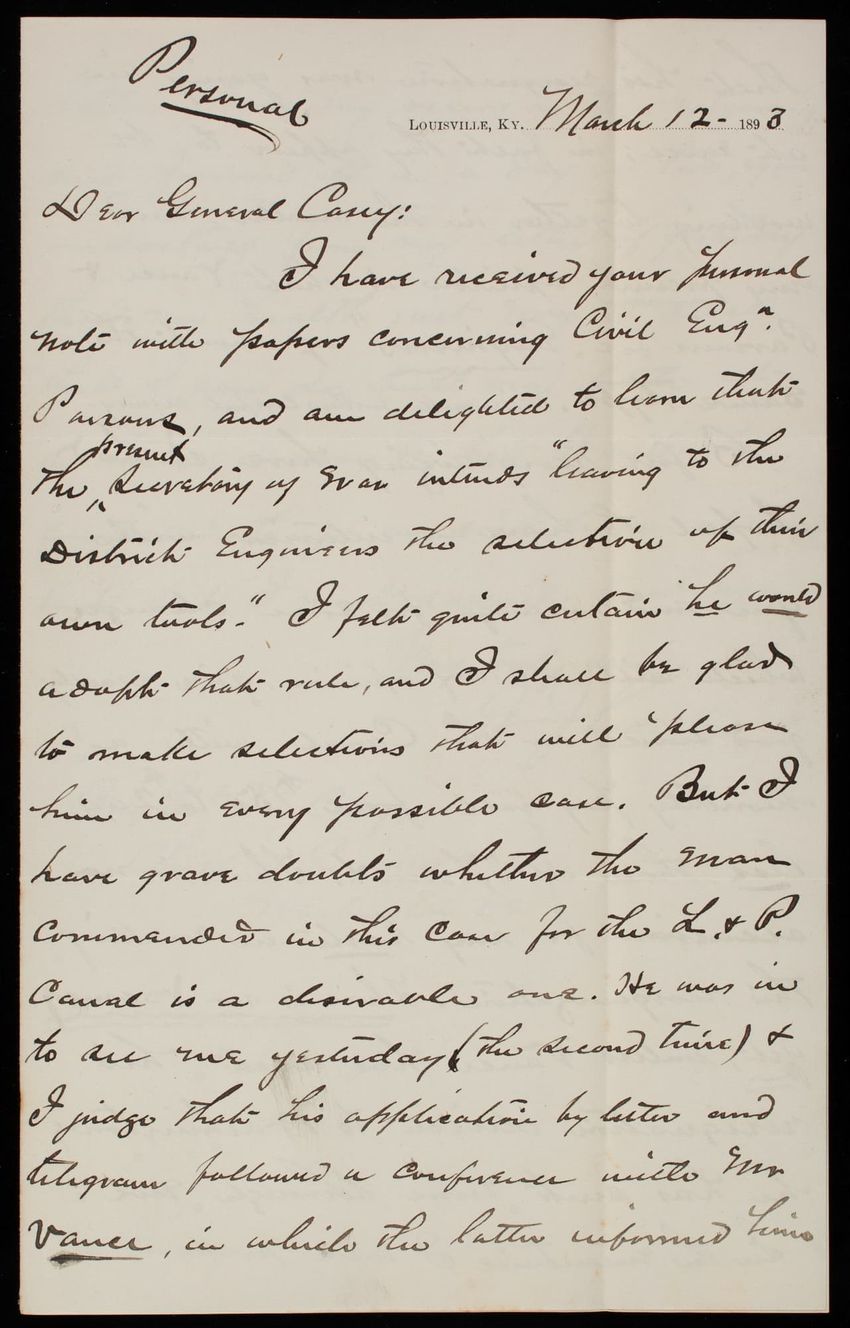 Personal
Louisville, Ky. March 12 - 1893
Dear General Casey:
I have received your personal
note with papers concerning Civil Engr.
Parsons, and am delighted to learn that
present
the ^ Secretary of War intends "leaving to the
District Engineers the selection of their
own tools." I felt quite certain he would
adopt that rule, and I shall be glad
to make selections that will please
him in every possible case. But I
have grave doubts whether the man
commended in this case for the L. & P.
Canal is a desirable one. He was in
to see me yesterday (the second time) &
I judge that his application by letter and
telegram followed a conference with Mr
Vance, in which the latter informed him